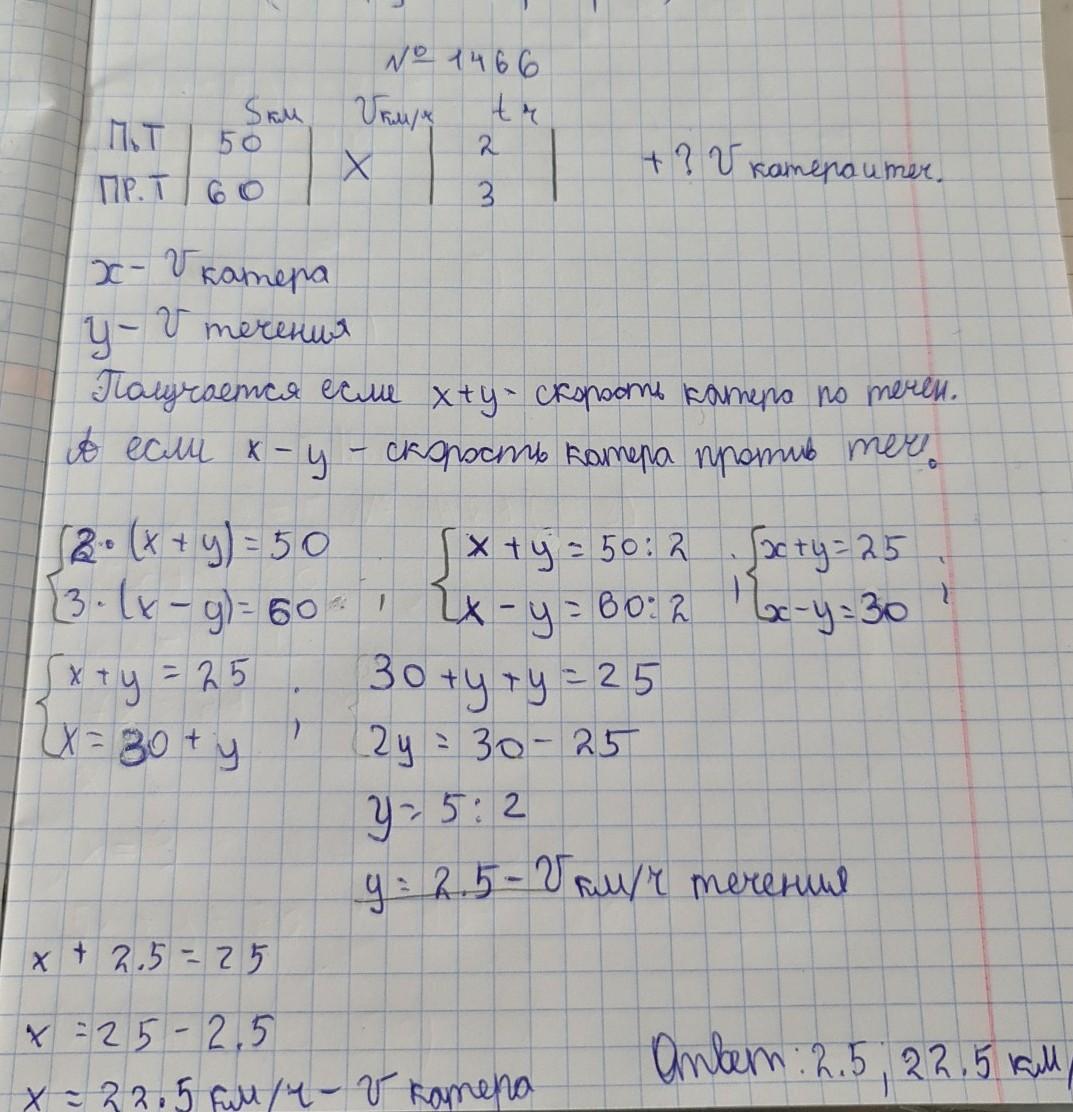 № 1466
Sкм Vкм/ч tч
П.Т 50 X 2 + ? V катера и теч.
ПР.Т 60 3
x - V катера
y - V течения
Получается если x+y - скорость катера по течен.
А если x - y - скорость катера против теч.
2·(x+y)=50 x+y=50:2 x+y=25
3·(x-y)=60; x-y=60:2; x-y=30;
x+y=25 30+y+y=25
x=30+y; 2y=30-25
y=5:2
y=2.5 - V км/ч течения
x+2.5=25
x=25-2,5
x=22.5 км/ч - V катера Ответ: 2.5; 22.5 км/